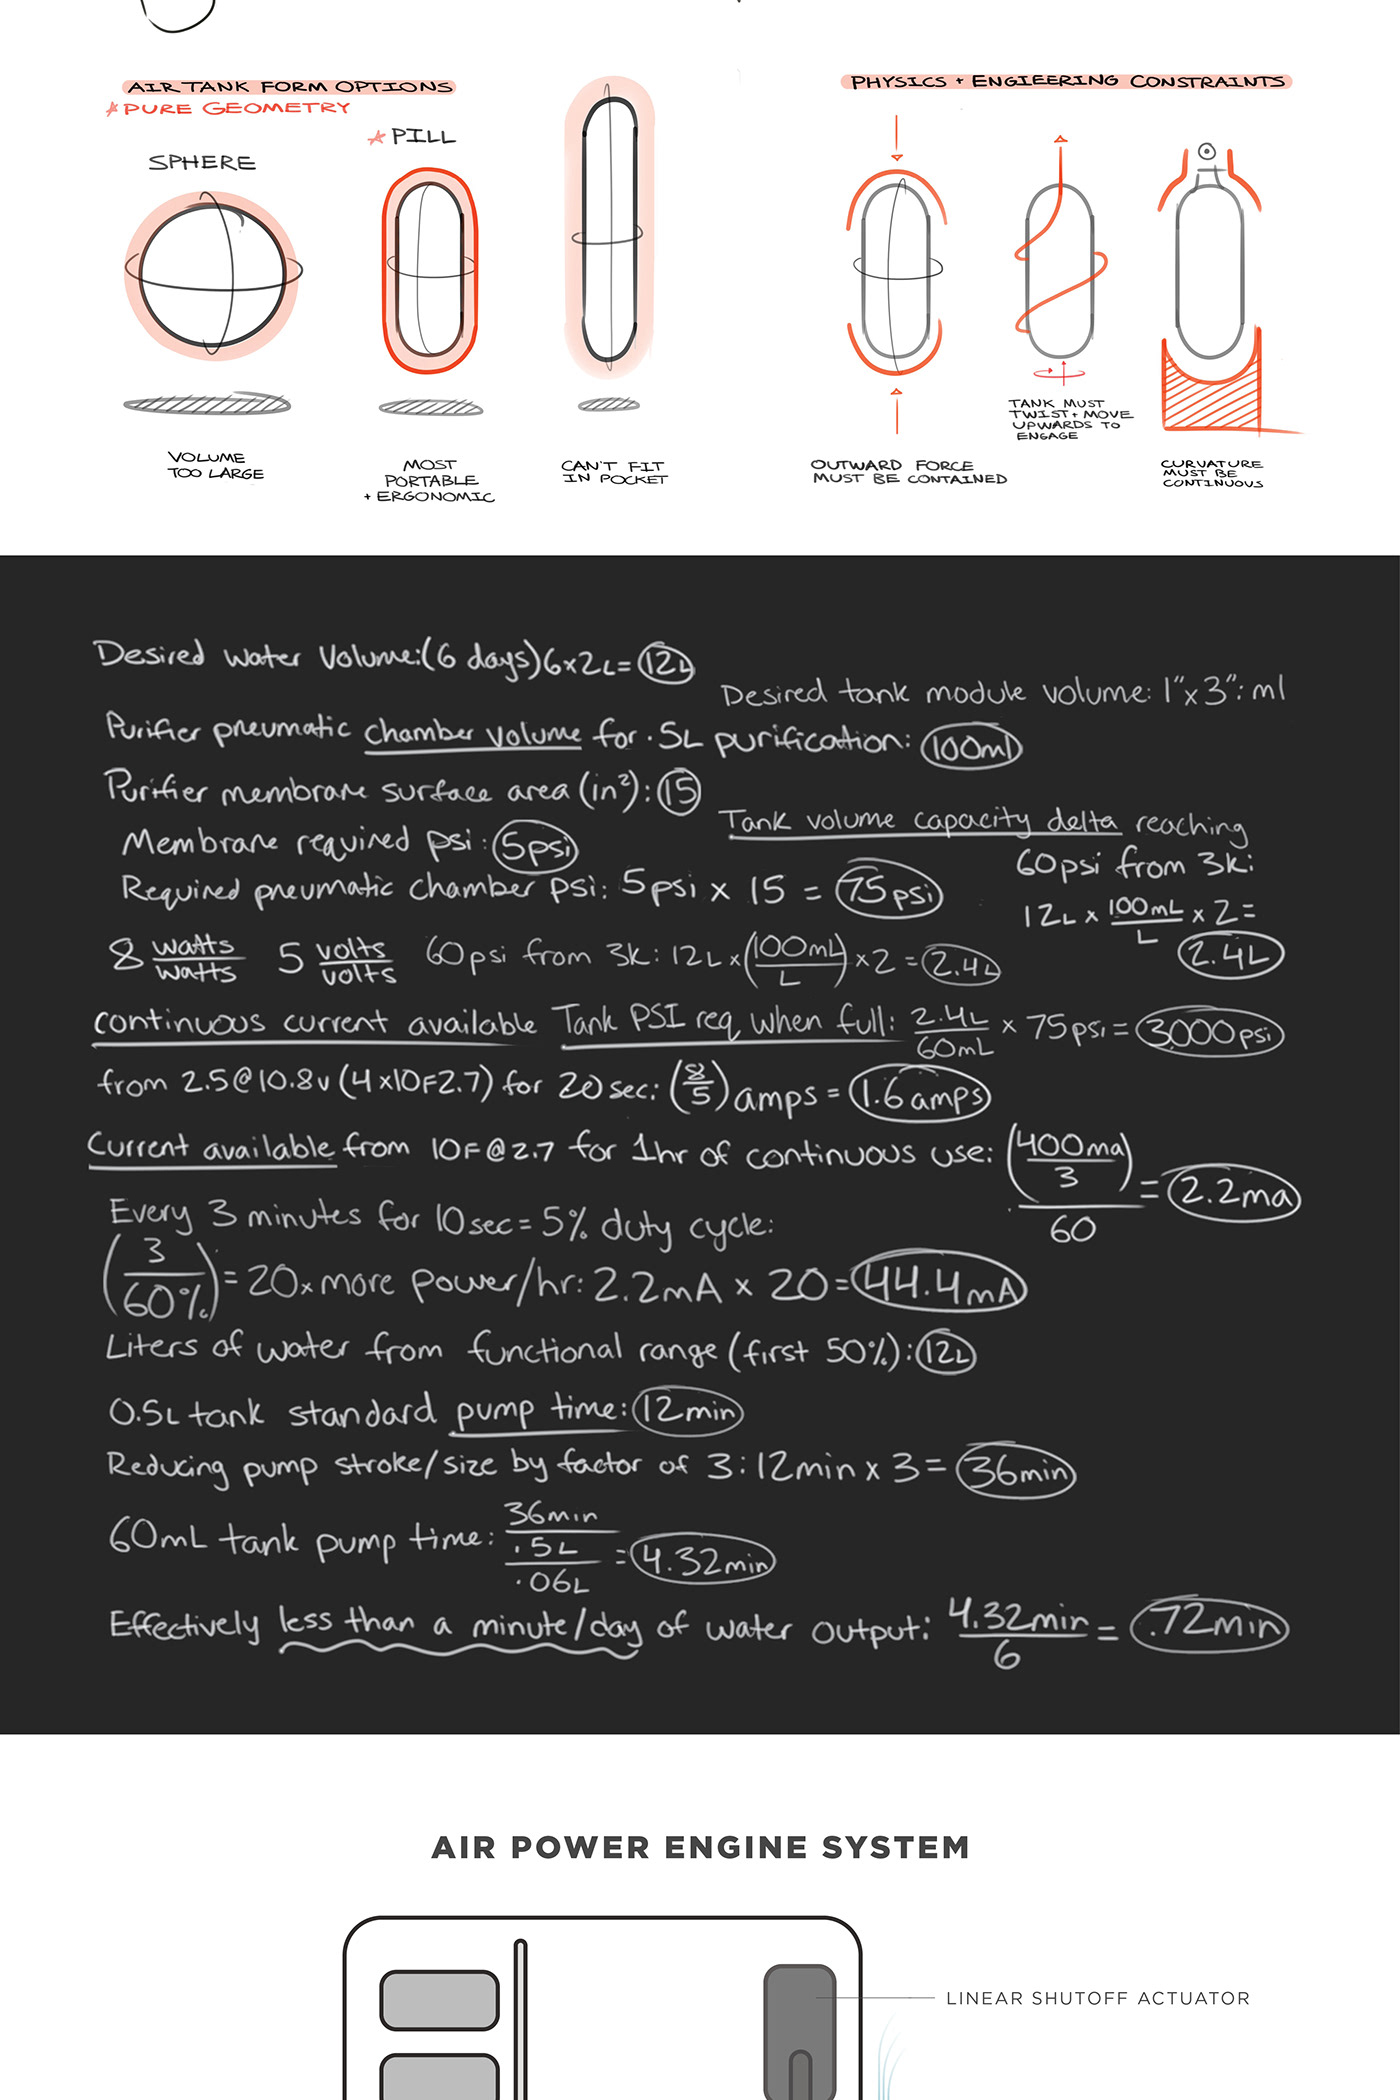 AIR TANK FORM OPTIONS
* PURE GEOMETRY
SPHERE
* PILL
VOLUME
TOO LARGE
MOST
PORTABLE
+ ERGONOMIC
CAN'T FIT
IN POCKET
PHYSICS + ENGIEERING CONSTRAINTS
OUTWARD FORCE
MUST BE CONTAINED
TANK MUST
TWIST + MOVE
UPWARDS TO
ENGAGE
CURVATURE
MUST BE
CONTINUOUS
Desired water Volume: (6 days) 6x2L = 12L
Desired tank module volume: 1"x3": ml
Purifier pneumatic chamber volume for .5L purification: 100ml
Purifier membrane surface area (in²): 15
Membrane required psi: 5psi
Tank volume capacity delta reaching
60psi from 3k:
12L x 100mL/L x 2 =
2.4L
Required pneumatic chamber psi: 5psi x 15 = 75psi
8 watts/watts 5 volts/volts 60psi from 3k: 12L x (100mL/L) x 2 = 2.4L
continuous current available Tank PSI req when full: 2.4L/60mL x 75psi = 3000psi
from 2.5@10.8v (4x10F2.7) for 20sec: (8/5) amps = 1.6amps
Current available from 10F@2.7 for 1hr of continuous use: (400ma/3)/60 = 2.2ma
Every 3 minutes for 10sec = 5% duty cycle:
(3/60%) = 20x more power/hr: 2.2mA x 20 = 44.4mA
Liters of water from functional range (first 50%): 12L
0.5L tank standard pump time: 12min
Reducing pump stroke/size by factor of 3: 12min x 3 = 36min
60mL tank pump time: 36min/.5L/.06L = 4.32min
Effectively less than a minute/day of water output: 4.32min/6 = .72min
AIR POWER ENGINE SYSTEM
LINEAR SHUTOFF ACTUATOR